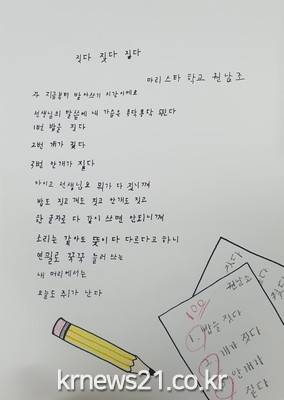 짓다 짖다 짙다
마리스타 학교 원남조
자 지금부터 받아쓰기 시간이에요
선생님의 말씀에 내 가슴은 쿵닥쿵닥 뛴다
1번 밥을 짓다
2번 개가 짖다
3번 안개가 짙다
아이고 선생님요 뭐가 다 짇니껴
밥도 짇고 개도 짇고 안개도 짇고
한 글자로 다 같이 쓰면 안되니껴
소리는 같아도 뜻이 다 다르다고 하니
연필로 꾹꾹 눌러 쓰는
내 머리에서는
오늘도 쥐가 난다
짓다
원남조
짓다
100
1. 밥을 짓다
2. 개가 짖다
3. 안개가
짙다
krnews21.co.kr